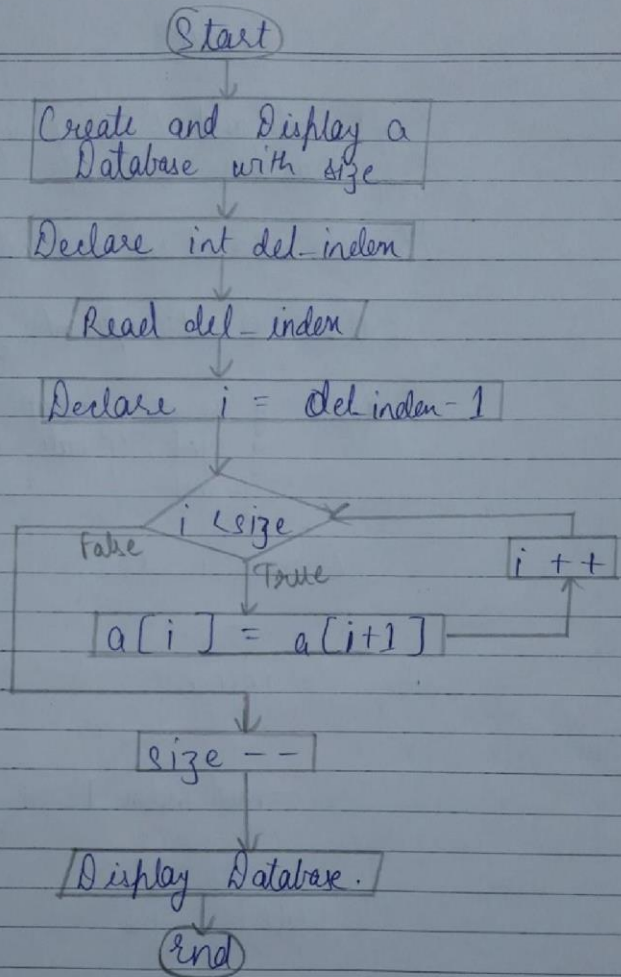 Start
Create and Display a
Database with size
Declare int del_index
Read del_index
Declare i = del index - 1
i < size
False
True
i ++
a[i] = a[i+1]
size --
Display Database.
End